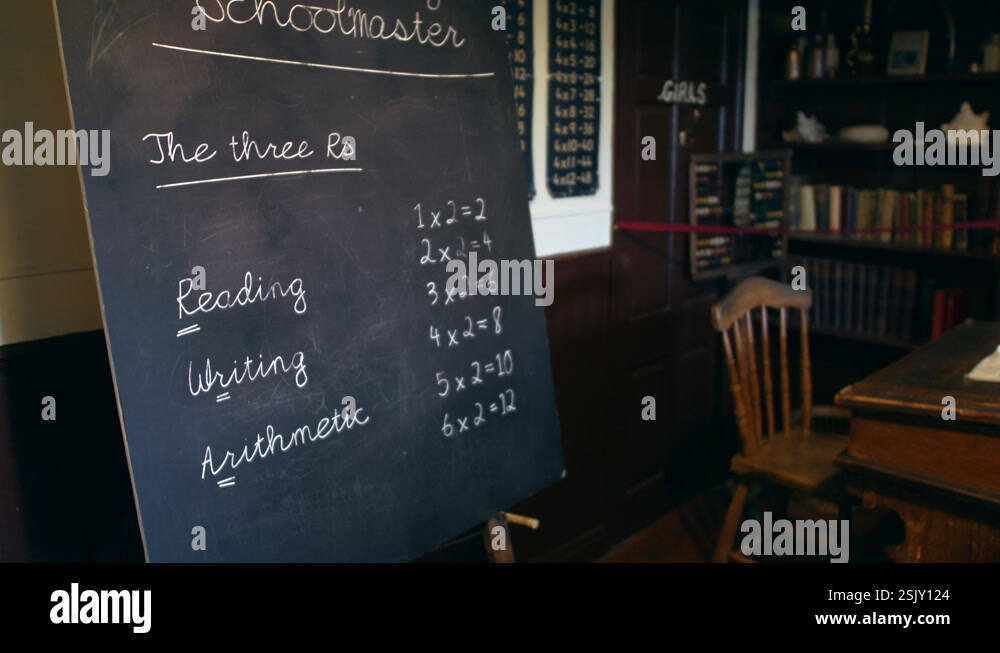 Schoolmaster
The three Rs
Reading
Writing
Arithmetic
1 x 2 = 2
2 x 2 = 4
3 x 2 = 6
4 x 2 = 8
5 x 2 = 10
6 x 2 = 12
4x2-8
4x3-12
4x4-16
4x5-20
4x6-24
4x7-28
4x8-32
4x9-36
4x10-40
4x11-44
4x12-48
GIRLS
alamy
alamy
Image ID: 2SJY124
www.alamy.com